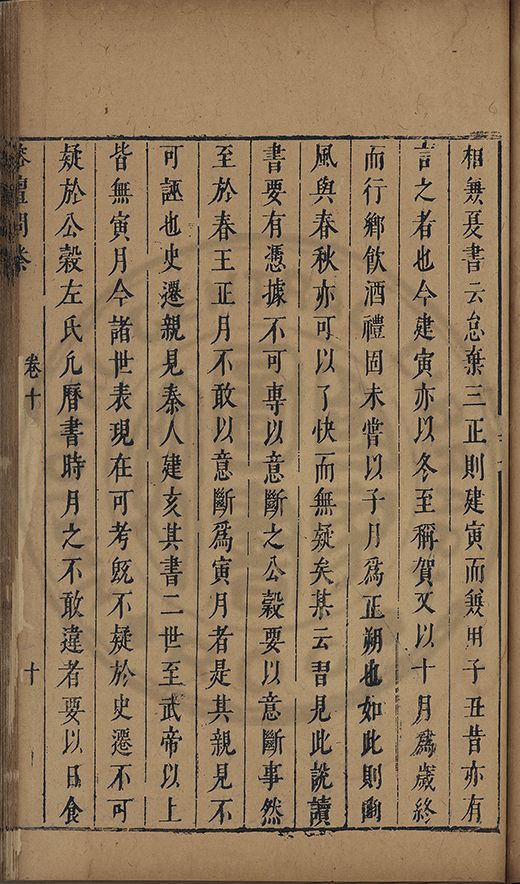 相無夏書云怠棄三正則建寅而無用子丑昔亦有
言之者也今建寅亦以冬至稱賀又以十月爲歲終
而行鄉飲酒禮固未嘗以子月爲正朔也如此則豳
風與春秋亦可以了快而無疑矣某云曾見此說讀
書要有憑據不可專以意斷之公糓要以意斷事然
至於春王正月不敢以意斷爲寅月者是其親見不
可誣也史遷親見秦人建亥其書二世至武帝以上
皆無寅月今諸世表現在可考旣不疑於史遷不可
疑於公糓左氏凢曆書時月之不敢違者要以日食
榕壇問業
卷十
十